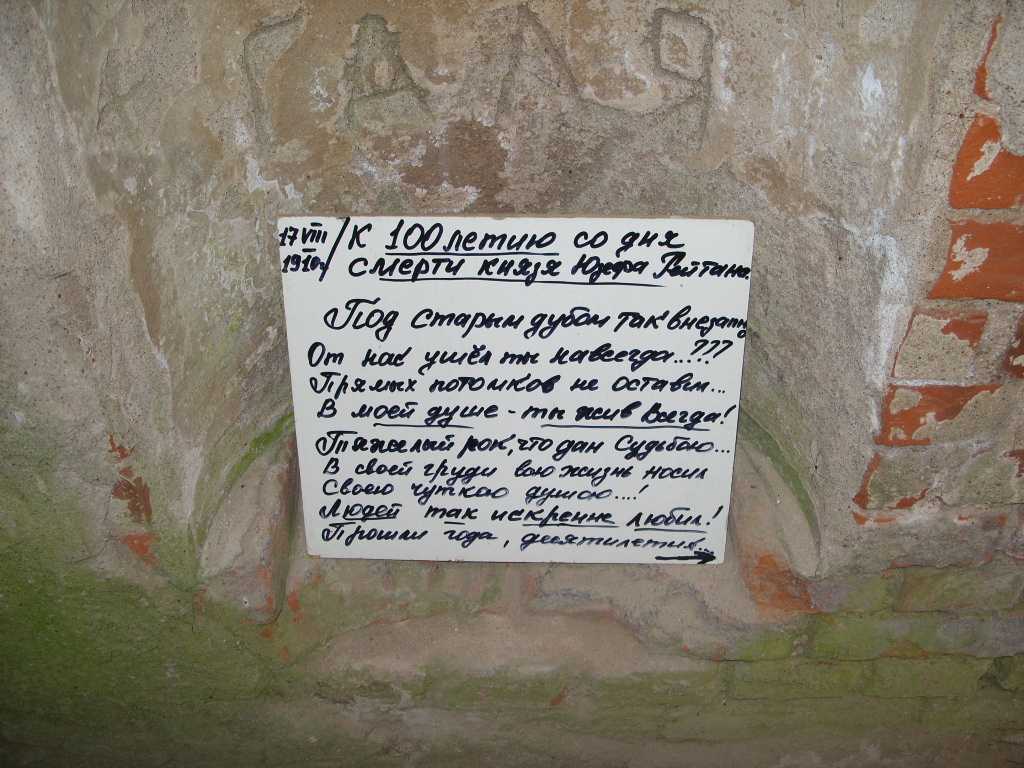 ГАЛЯ
17 VIII / К 100 летию со дня
1910г смерти князя Юзефа Рейтана.
Под старым дубом так внезапно
От нас ушёл ты навсегда...???
Прямых потомков не оставил...
В моей душе - ты жив Всегда!
Тяжёлый рок, что дан Судьбою...
В своей груди всю жизнь носил
Своею чуткою душою...!
Людей так искренне любил!
Прошли года, десятилетия...